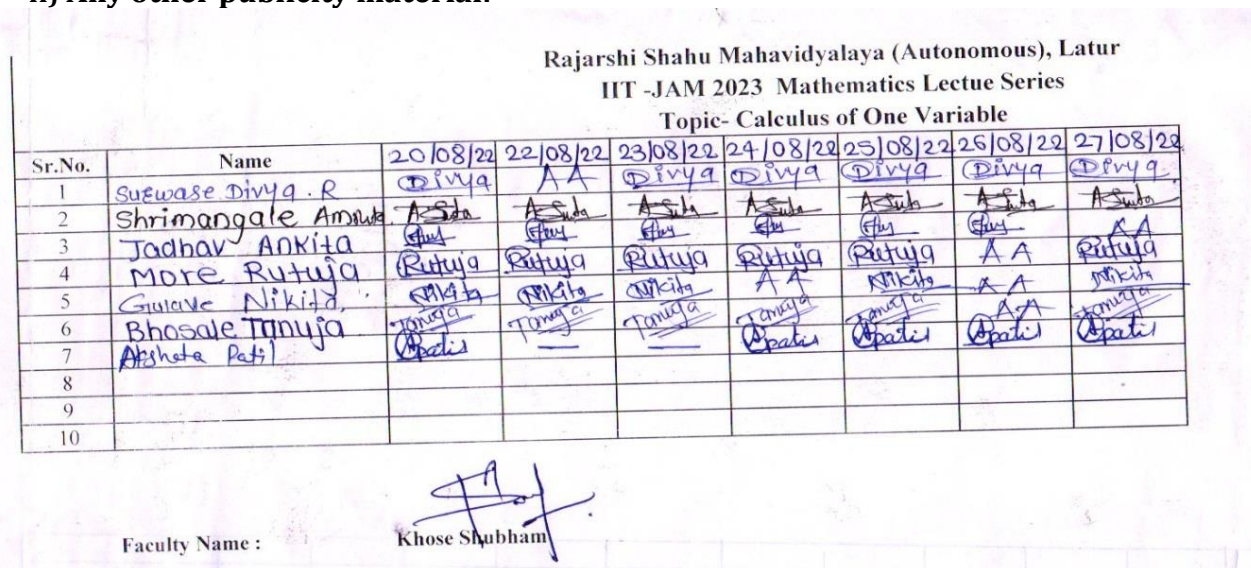 n) Any other publicity material.
Rajarshi Shahu Mahavidyalaya (Autonomous), Latur
IIT -JAM 2023 Mathematics Lectue Series
Topic- Calculus of One Variable
Sr.No. Name 20/08/22 22/08/22 23/08/22 24/08/22 25/08/22 26/08/22 27/08/22
1 Suewase Divya . R Divya AA Divya Divya Divya Divya Divya
2 Shrimangale Amruta
3 Jadhav Ankita AA
4 More Rutuja Rutuja Rutuja Rutuja Rutuja Rutuja AA Rutuja
5 Gulave Nikita, Nikita Nikita Nikita AA Nikita AA Nikita
6 Bhosale Tanuja Tanuja Tanuja Tanuja Tanuja Tanuja AA Tanuja
7 Akshata Patil Apatil — — Apatil Apatil Apatil Apatil
8
9
10
Faculty Name : Khose Shubham